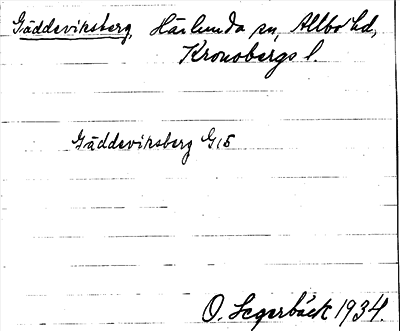 Gäddeviksberg, Härlunda sn, Allbo hd,
Kronobergs l.
Gäddeviksberg G15
O. Segerbäck 1934.